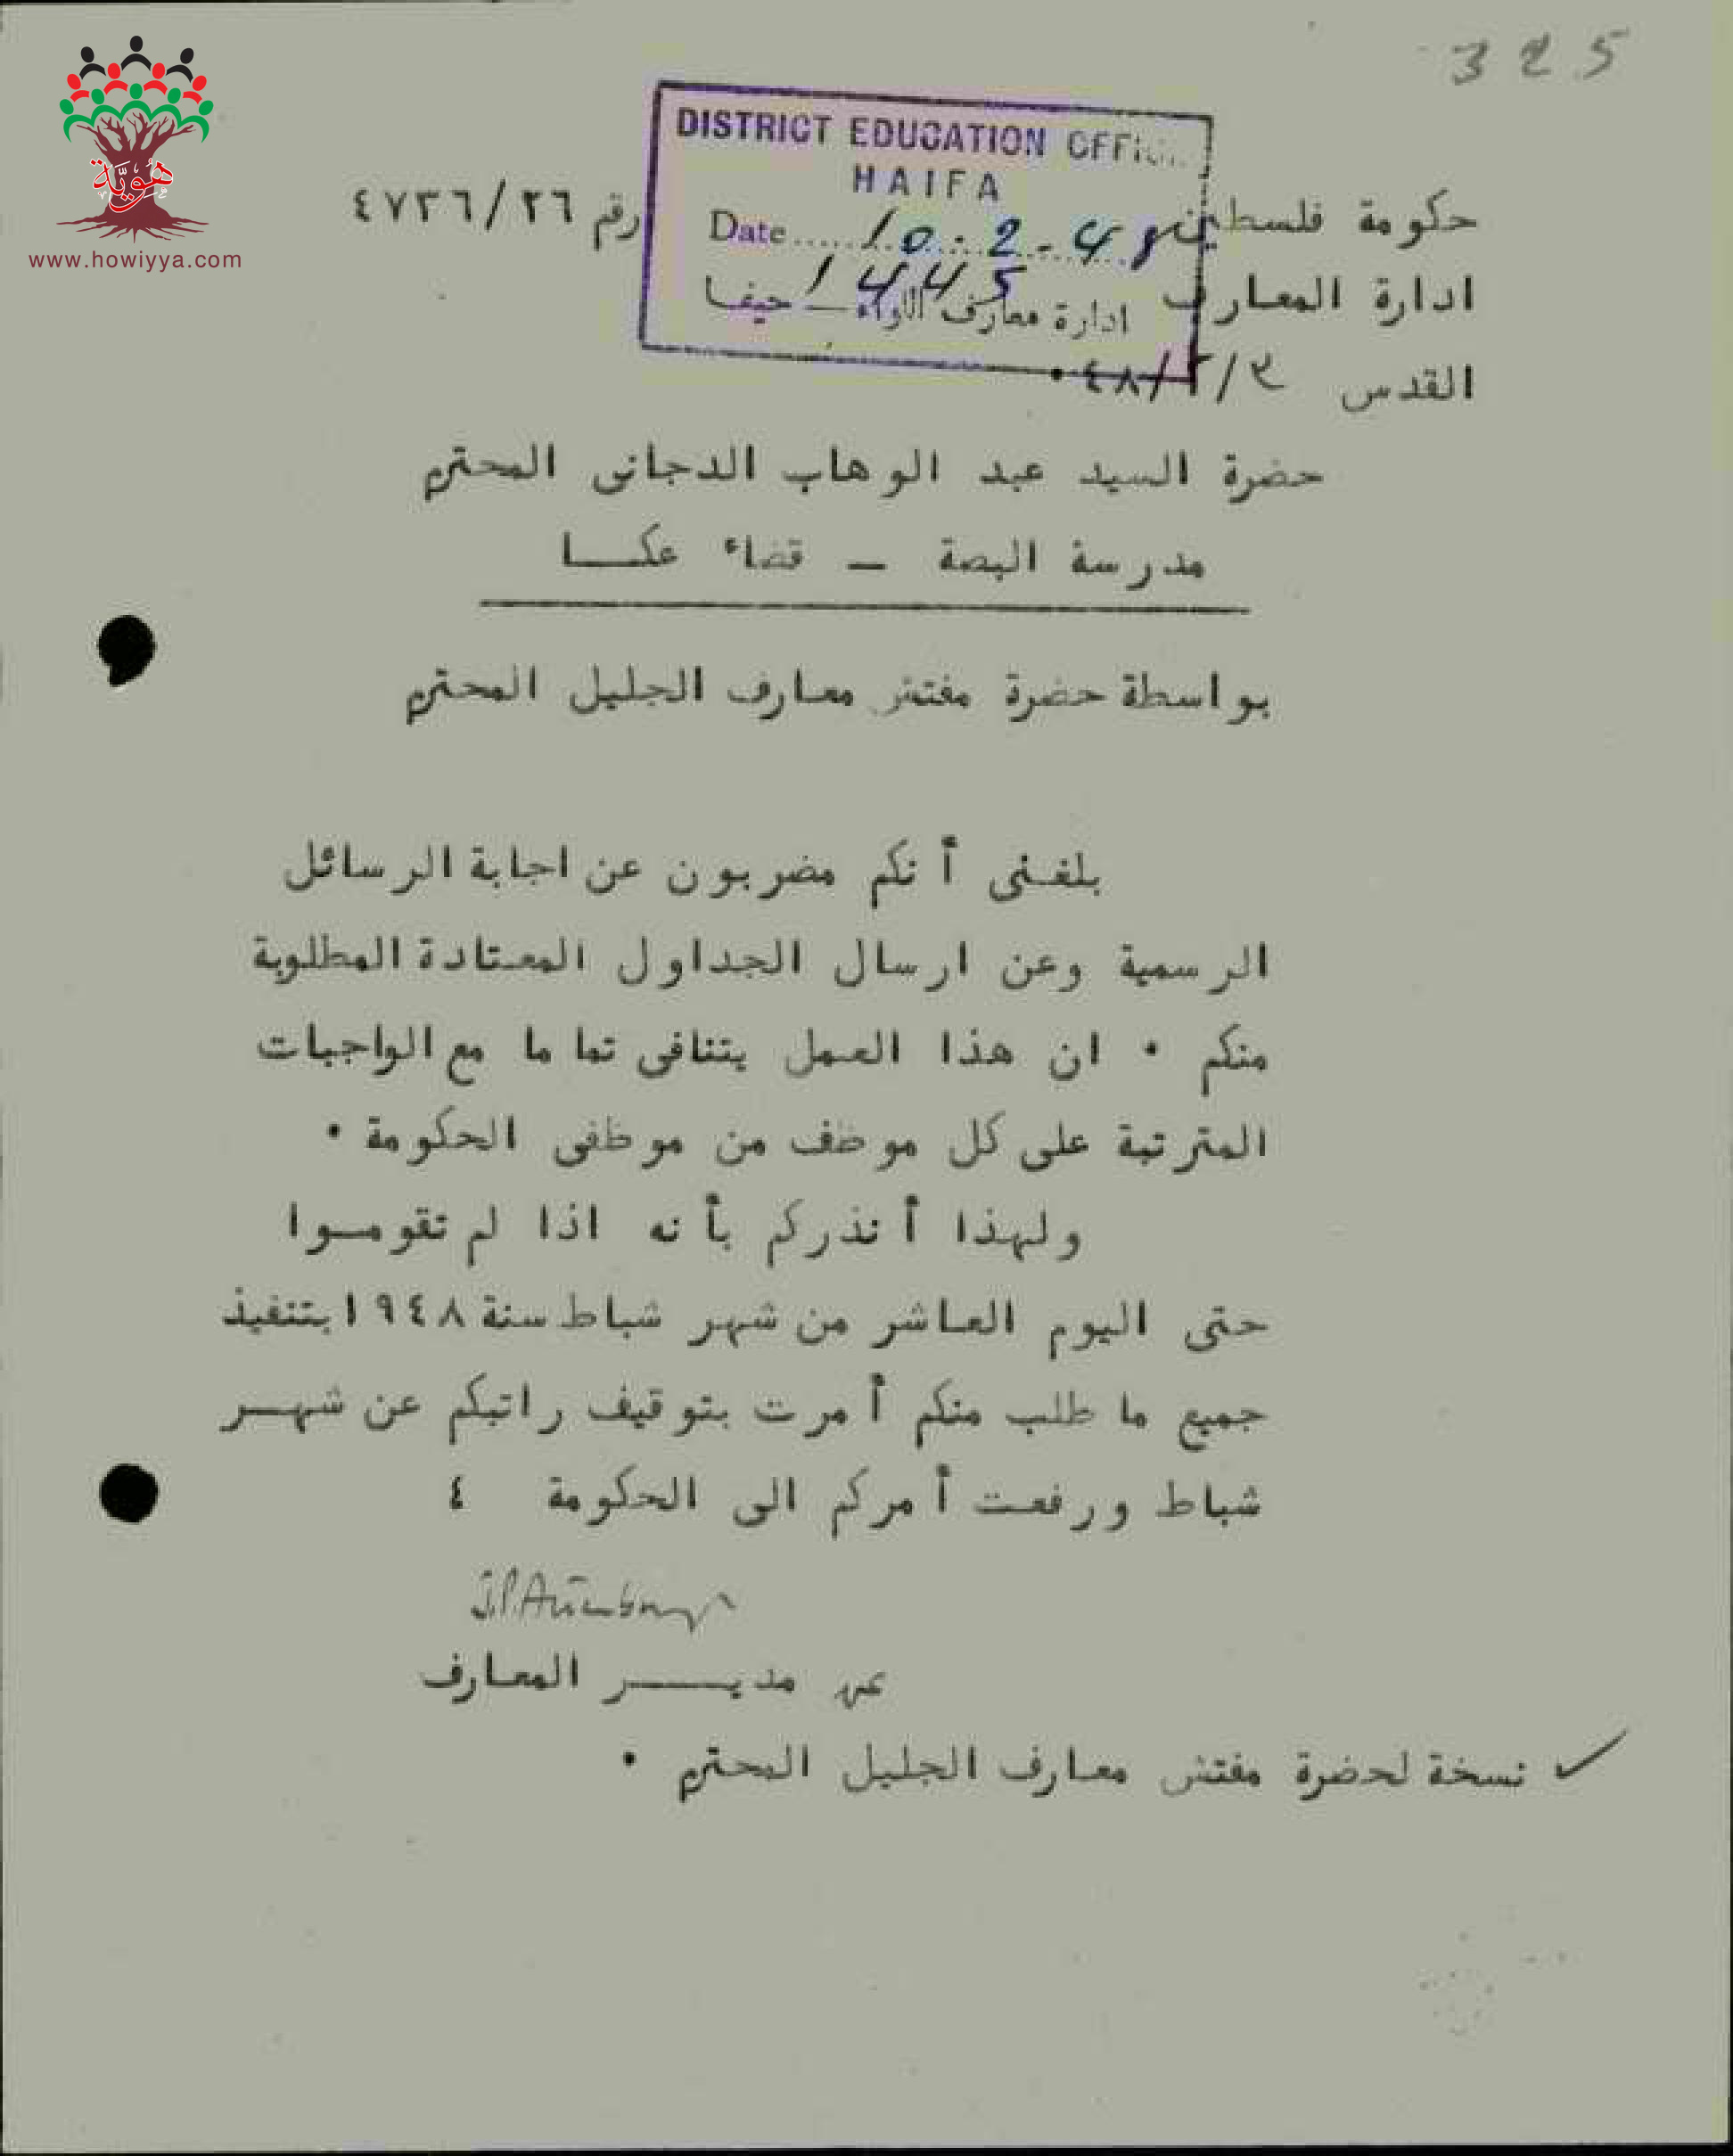 325
هُويَّة
www.howiyya.com
DISTRICT EDUCATION OFFI
HAIFA
Date 10.2.48
1445
ادارة معارف اللواء — حيفا
حكومة فلسطين
رقم ٤٧٣٦/٢٦
ادارة المعارف
القدس ٣/٢/٤٨.
حضرة السيد عبد الوهاب الدجانى المحترم
مدرسة البصة — قضاء عكا
بواسطة حضرة مفتش معارف الجليل المحترم
بلغنى أنكم مضربون عن اجابة الرسائل
الرسمية وعن ارسال الجداول المعتادة المطلوبة
منكم . ان هذا العمل يتنافى تماما مع الواجبات
المترتبة على كل موظف من موظفى الحكومة .
ولهذا أنذركم بأنه اذا لم تقوموا
حتى اليوم العاشر من شهر شباط سنة ١٩٤٨ بتنفيذ
جميع ما طلب منكم أمرت بتوقيف راتبكم عن شهر
شباط ورفعت أمركم الى الحكومة ٤
عن مدير المعارف
✓ نسخة لحضرة مفتش معارف الجليل المحترم .